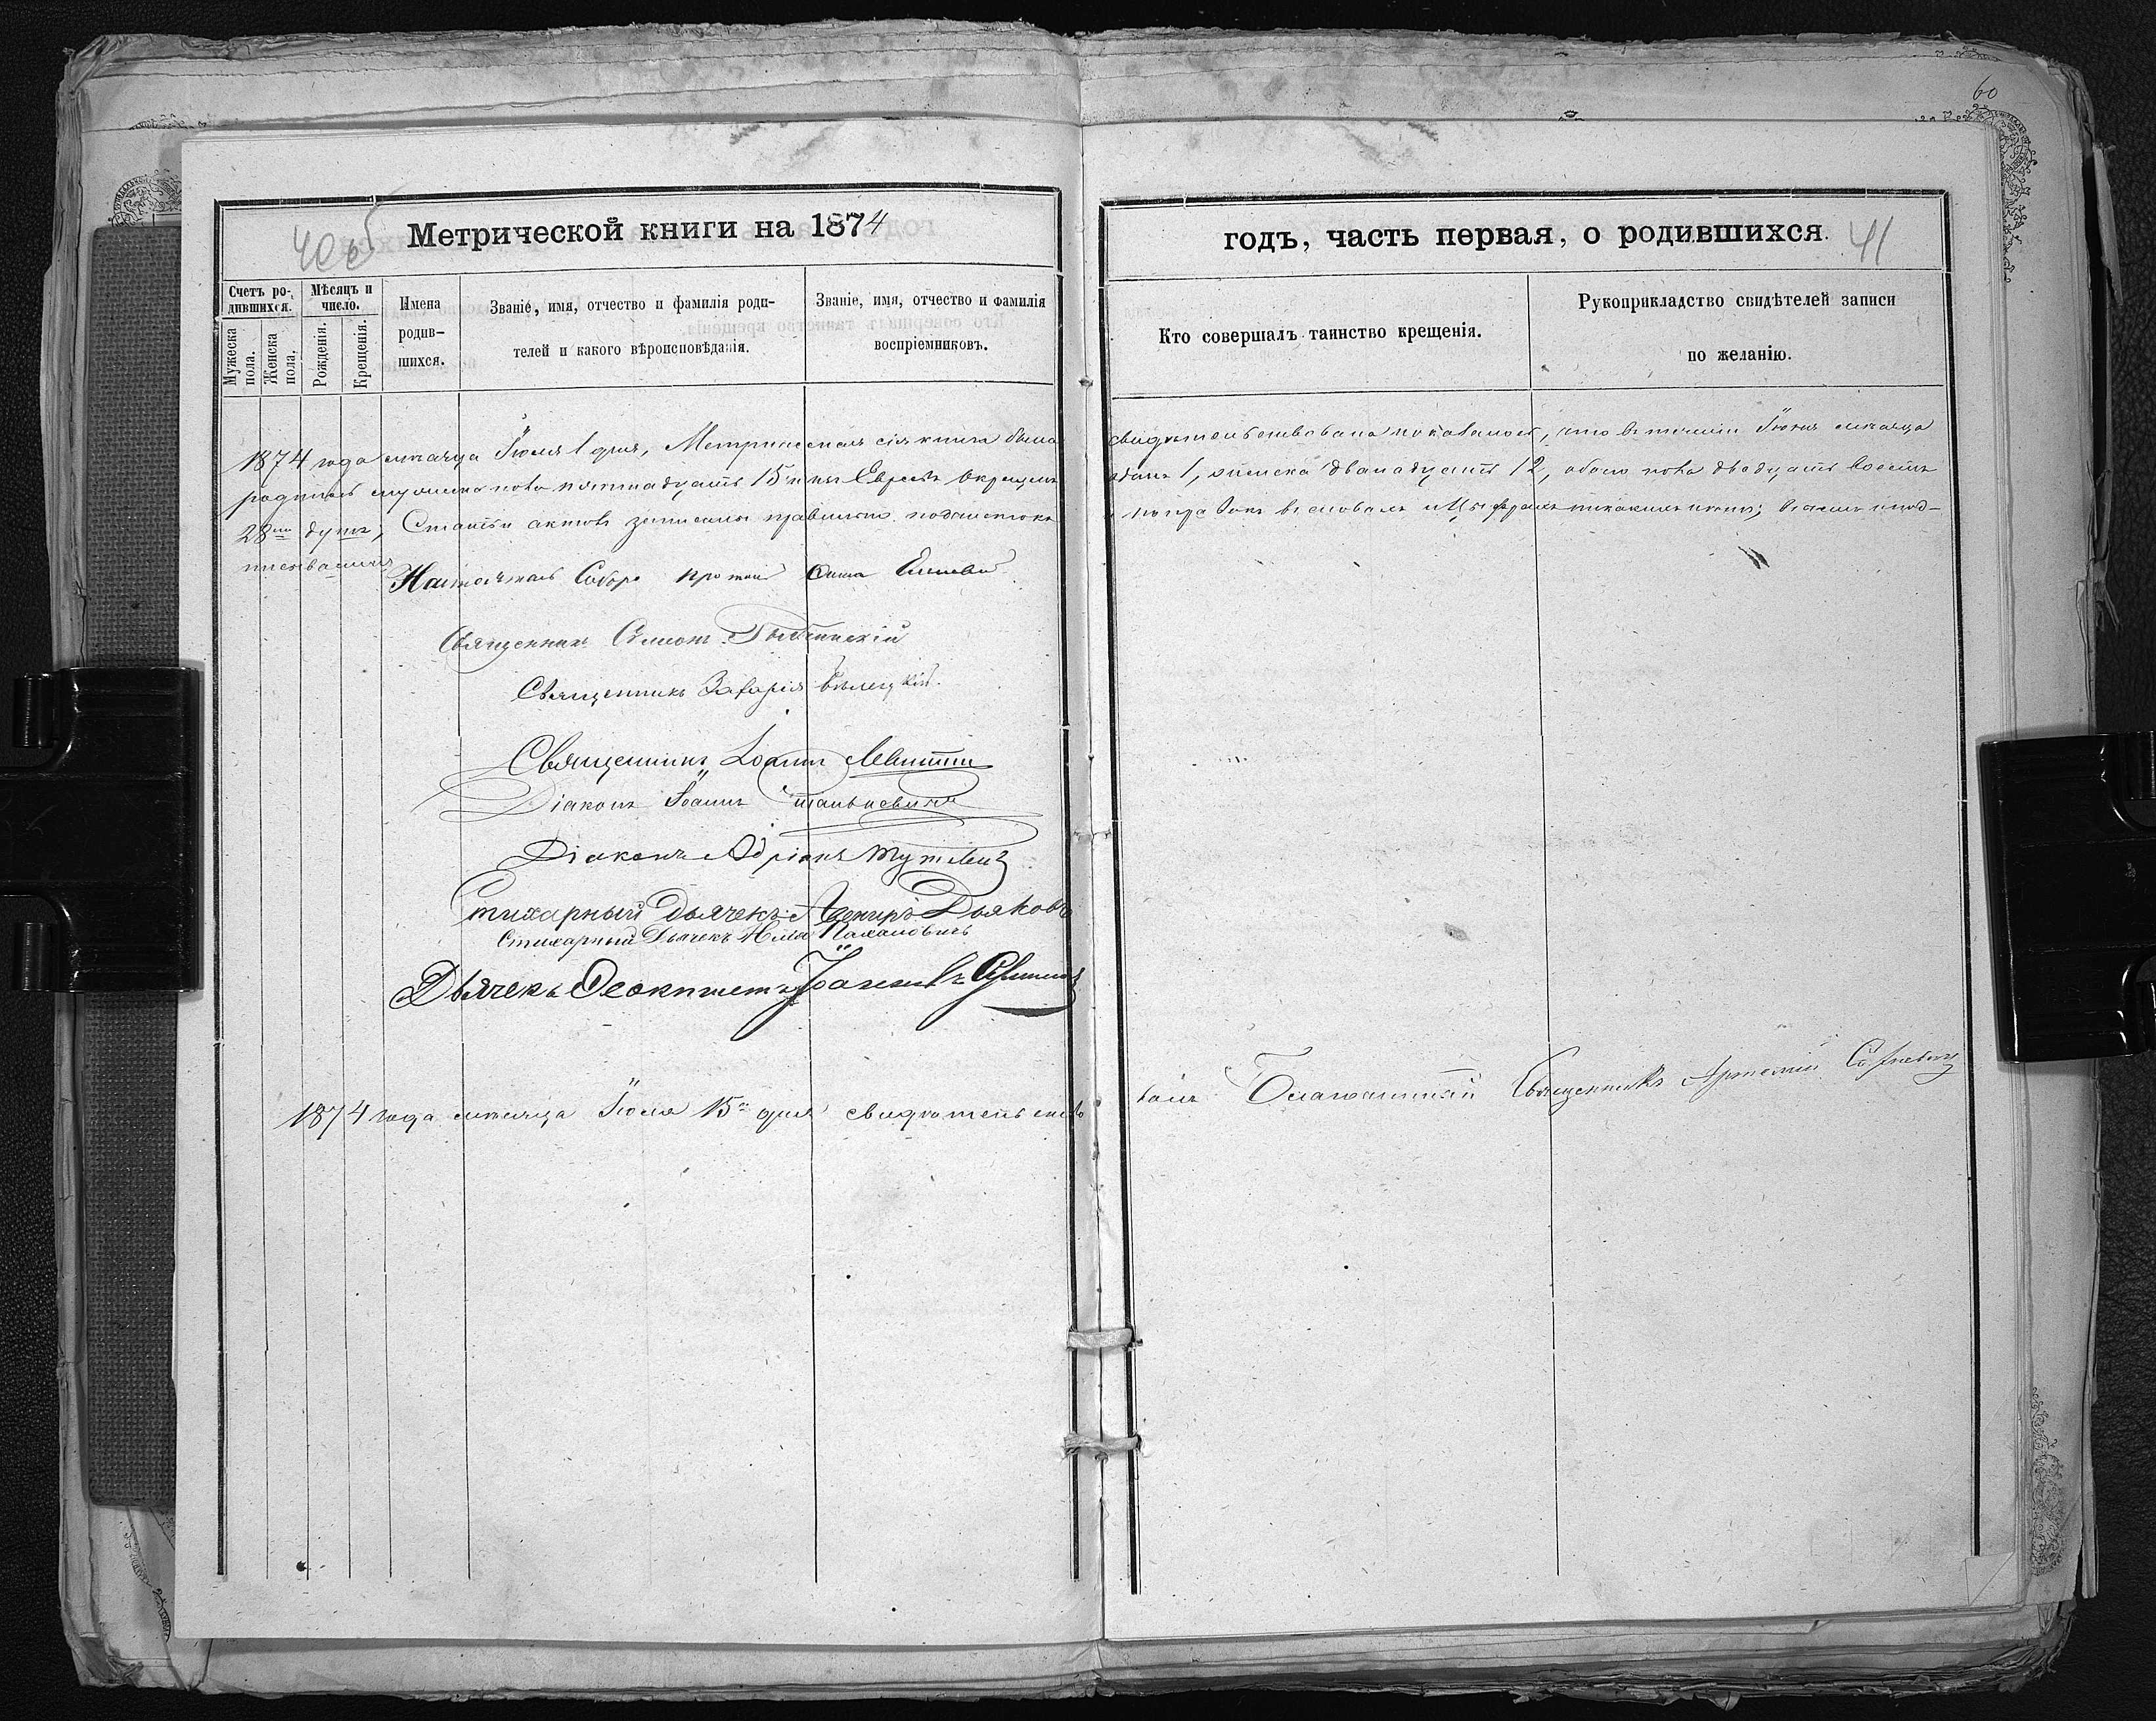 60
40об
Метрической книги на 1874
годъ, часть первая, о родившихся.
41
Счетъ ро-
дившихся.
Мѣсяцъ и
число.
Мужеска
пола.
Женска
пола.
Рожденія.
Крещенія.
Имена
родив-
шихся.
Званіе, имя, отчество и фамилія роди-
телей и какого вѣроисповѣданія.
Званіе, имя, отчество и фамилія
воспріемниковъ.
Кто совершалъ таинство крещенія.
Рукоприкладство свидѣтелей записи
по желанію.
1874 года мѣсяца Іюля 1 дня, Метрическая сія книга была свидѣтельствована и оказалось, что въ теченіи Іюня мѣсяца
родилось мужеска пола пятнадцать 15 и изъ Евреевъ окрещенъ одинъ 1, женска двѣнадцать 12, обоего пола двадцать восемь
28 душъ; Статьи актовъ записаны правильно, подчистокъ и поправокъ въ словахъ и цыфрахъ никакихъ нѣтъ; въ чемъ и под-
писываемся
Настоятель Собора
Священникъ
Священникъ Захарія Бѣлецкій.
Священникъ Іоаннъ
Діаконъ Іоаннъ
Діаконъ Адріанъ
Стихарный Дьячекъ Дьяковъ
Стихарный Дьячекъ
Дьячекъ Феоктистъ
1874 года мѣсяца Іюля 15 дня свидѣтельство
валъ Благочинный Священникъ Артемій